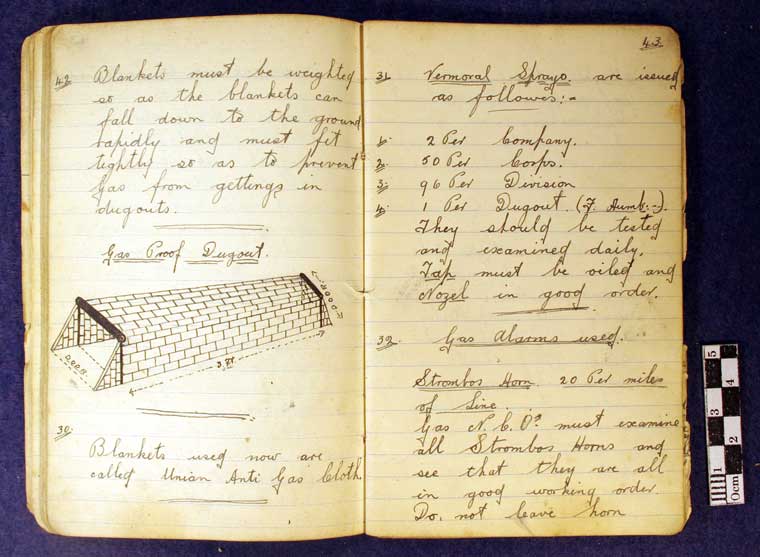 42 Blankets must be weighted
so as the blankets can
fall down to the ground
rapidly and must fit
tightly so as to prevent
Gas from gettings in
dugouts.
Gas Proof Dugout.
DOOR
DOOR
3 ft.
30.
Blankets used now are
called Unian Anti Gas Cloth.
43.
31. Vermoral Sprays. are issued
as followes:-
1. 2 Per Company.
2. 50 Per Corps.
3. 96 Per Division
4. 1 Per Dugout.
They should be tested
and examined daily.
Tap must be oiled and
Nozel in good order.
32. Gas Alarms used.
Strombos Horn. 20 Per miles
of Line.
Gas N.C.Os must examine
all Strombos Horns and
see that they are all
in good working order.
Do. not leave horn
5
4
3
2
1
0cm